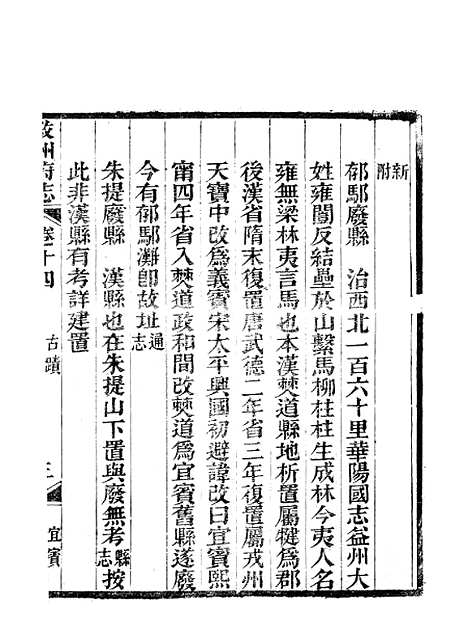 新附
郁鄢廢縣　治西北一百六十里華陽國志益州大
姓雍闓反結壘於山繫馬柳柱柱生成林今夷人名
雍無梁林夷言馬也本漢僰道縣地析置屬犍為郡
後漢省隋末復置唐武德二年省三年復置屬戎州
天寶中改為義賓宋太平興國初避諱改曰宜賓熙
甯四年省入僰道政和間改僰道為宜賓舊縣遂廢
今有郁鄢灘卽故址通志
朱提廢縣　漢縣也在朱提山下置與廢無考縣志按
此非漢縣有考詳建置
敘州府志
卷十四
古蹟
三
宜賓